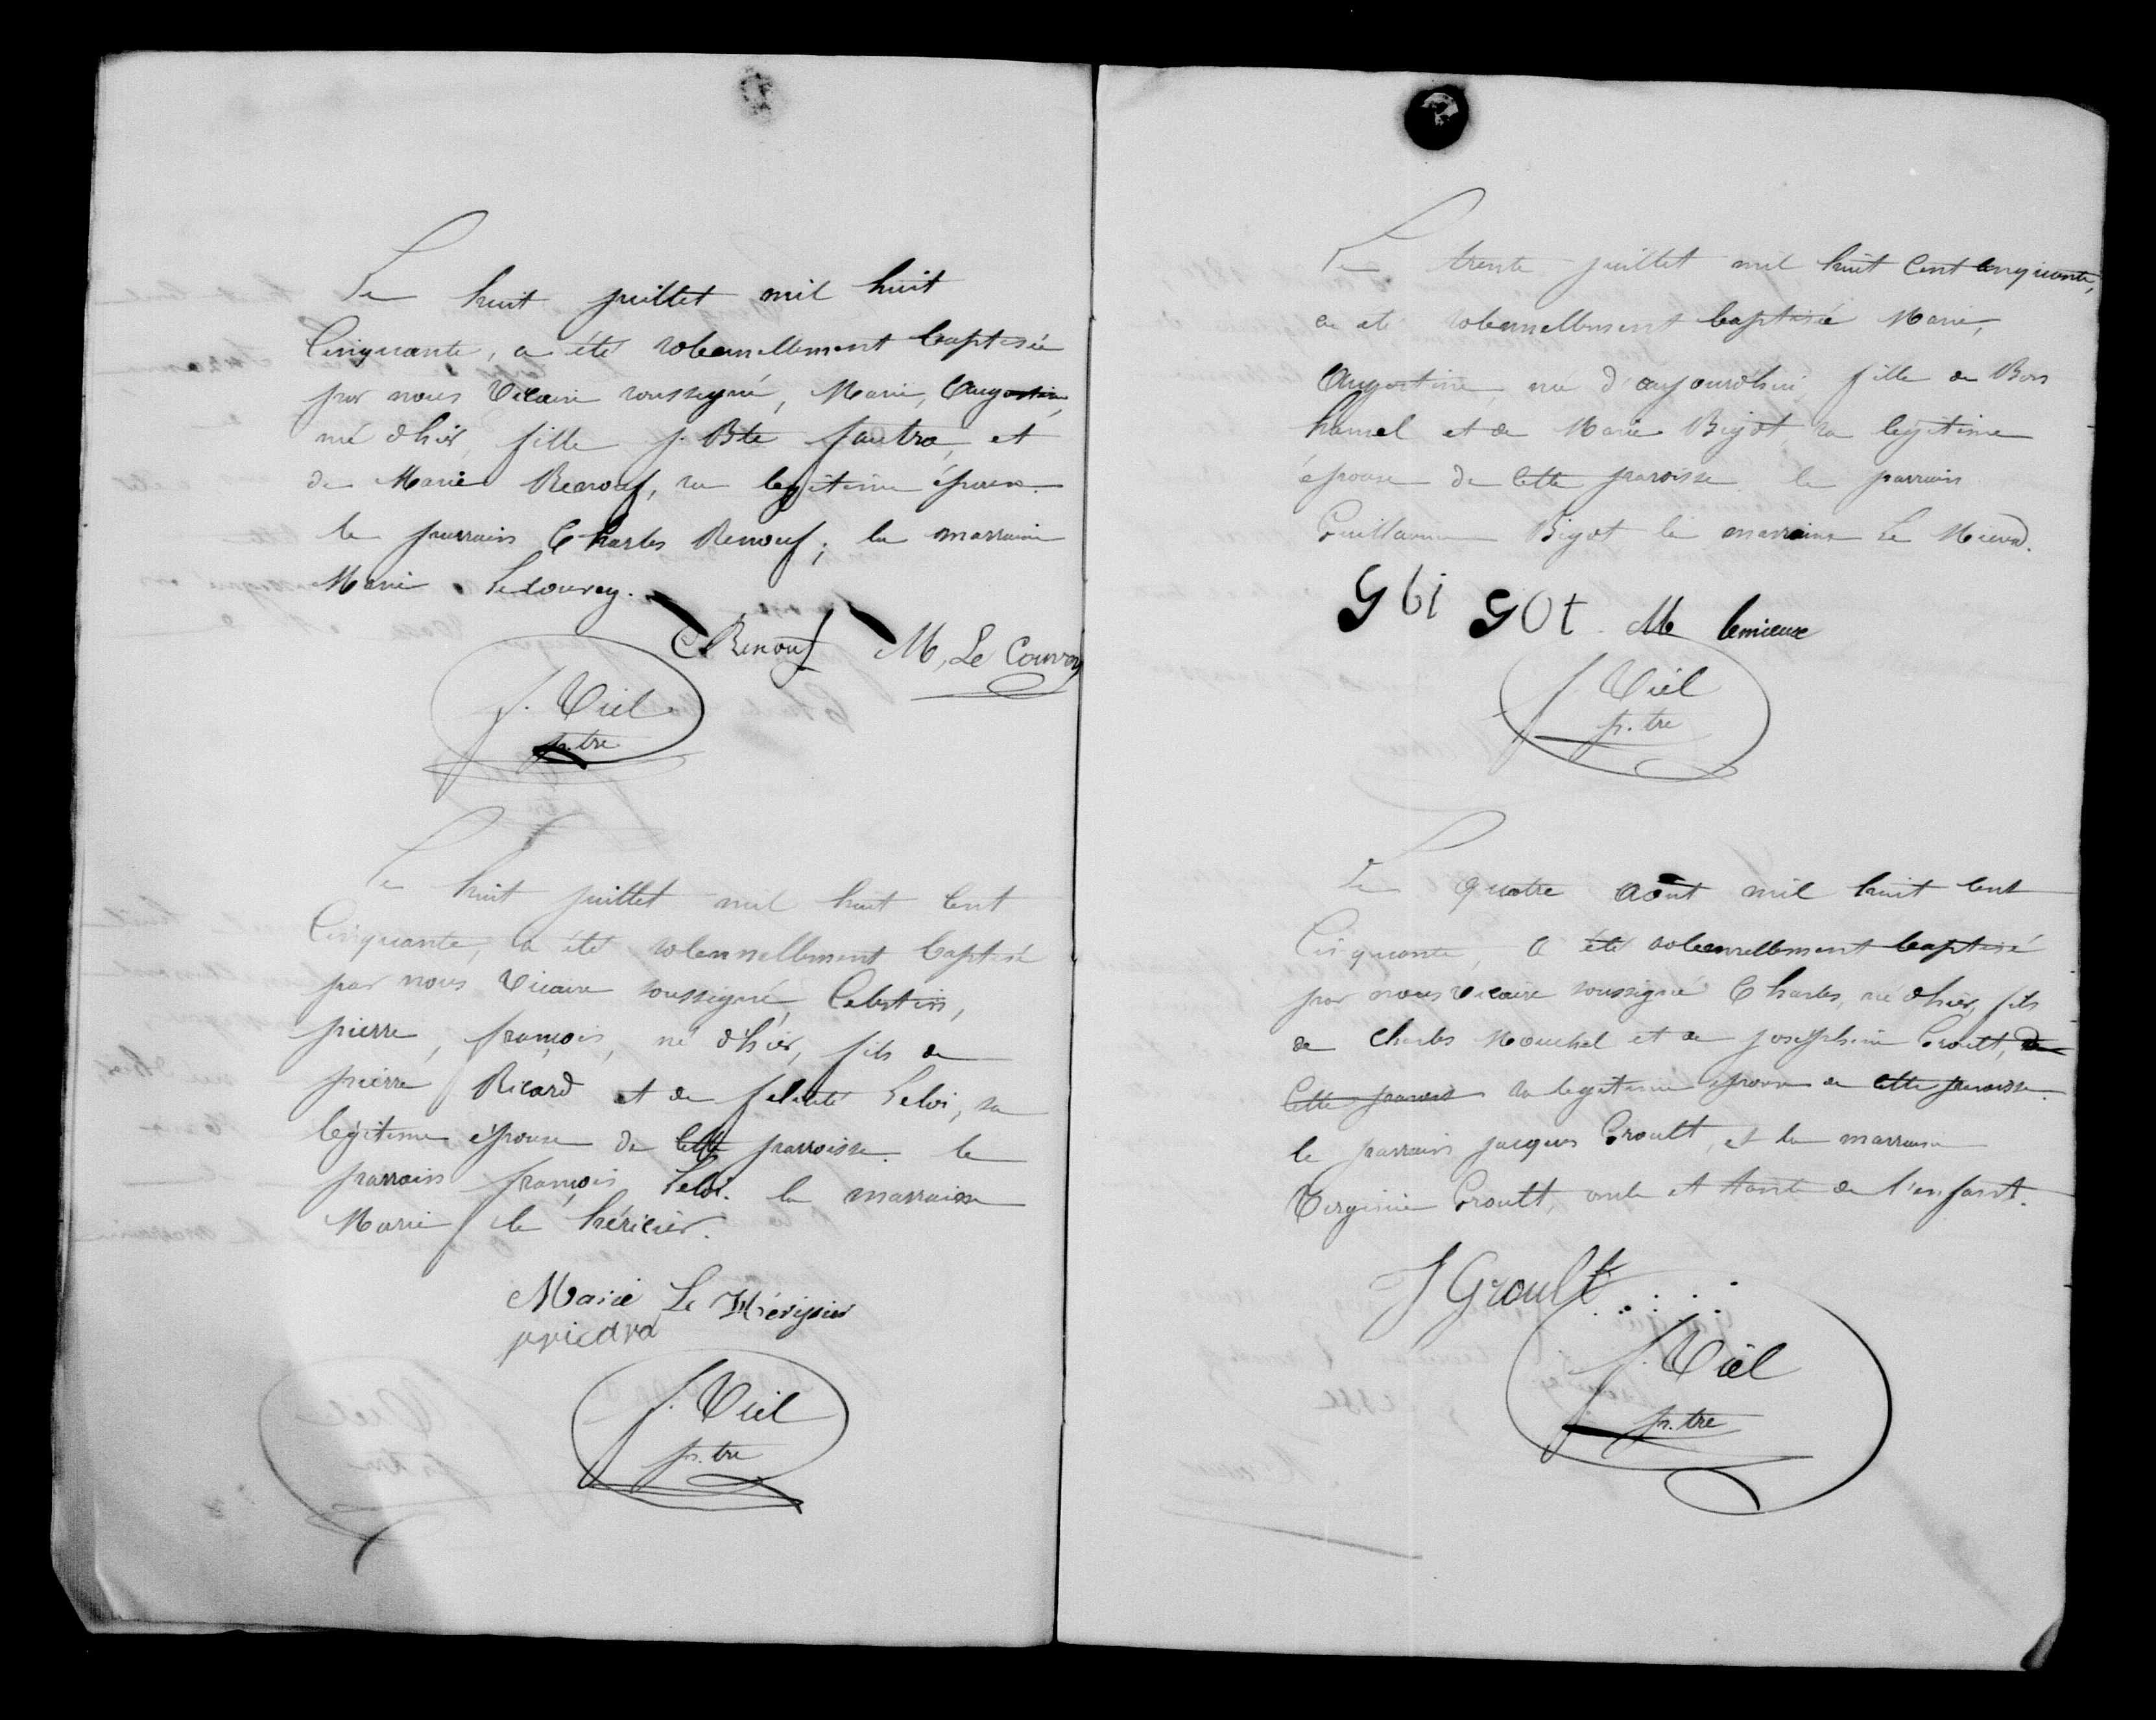 Le huit juillet mil huit
Cinquante, a été solemnellement baptisée
par nous Vicaire soussigné, Marie, Augustine,
né d'hier, fille j. Bte fautra, et
de Marie Renouf, sa legitime épouse.
le parrain Charles Renouf; la marraine
Marie Lecouvey.
C. Renouf M. Le Couvey
f. Viel
p.tre
Le huit juillet mil huit Cent
Cinquante, a été solennellement baptisé
par nous Vicaire soussigné, Celestin,
pierre, françois, né d'hier, fils de
pierre Ricard et de felicité Leloi, sa
légitime épouse de cette parroisse. le
parrain françois Leloi. la marraine
Marie le héricier.
Marie Le Hérissier
pricard
f. Viel
p.tre
Le trente juillet mil huit Cent Cinquante,
a eté solemnellement baptisée Marie,
Augustine, née d'aujourd'hui, fille de Bon
hamel et de Marie Bigot, sa legitime
épouse de cette paroisse. le parrain
Guillaume Bigot la marraine Le
g bi got M lemieux
f. Viel
p.tre
Le quatre Août mil huit Cent
Cinquante, a été solemnellement baptisé
par nous Vicaire soussigné Charles, né d'hier, fils
de Charles Mouchel et de josephine Groult, de
Cette sa legitime épouse de cette paroisse.
le parrain jacques Groult, et la marraine
Virginie Groult, oncle et tante de l'enfant.
J Groult
f. Viel
p.tre